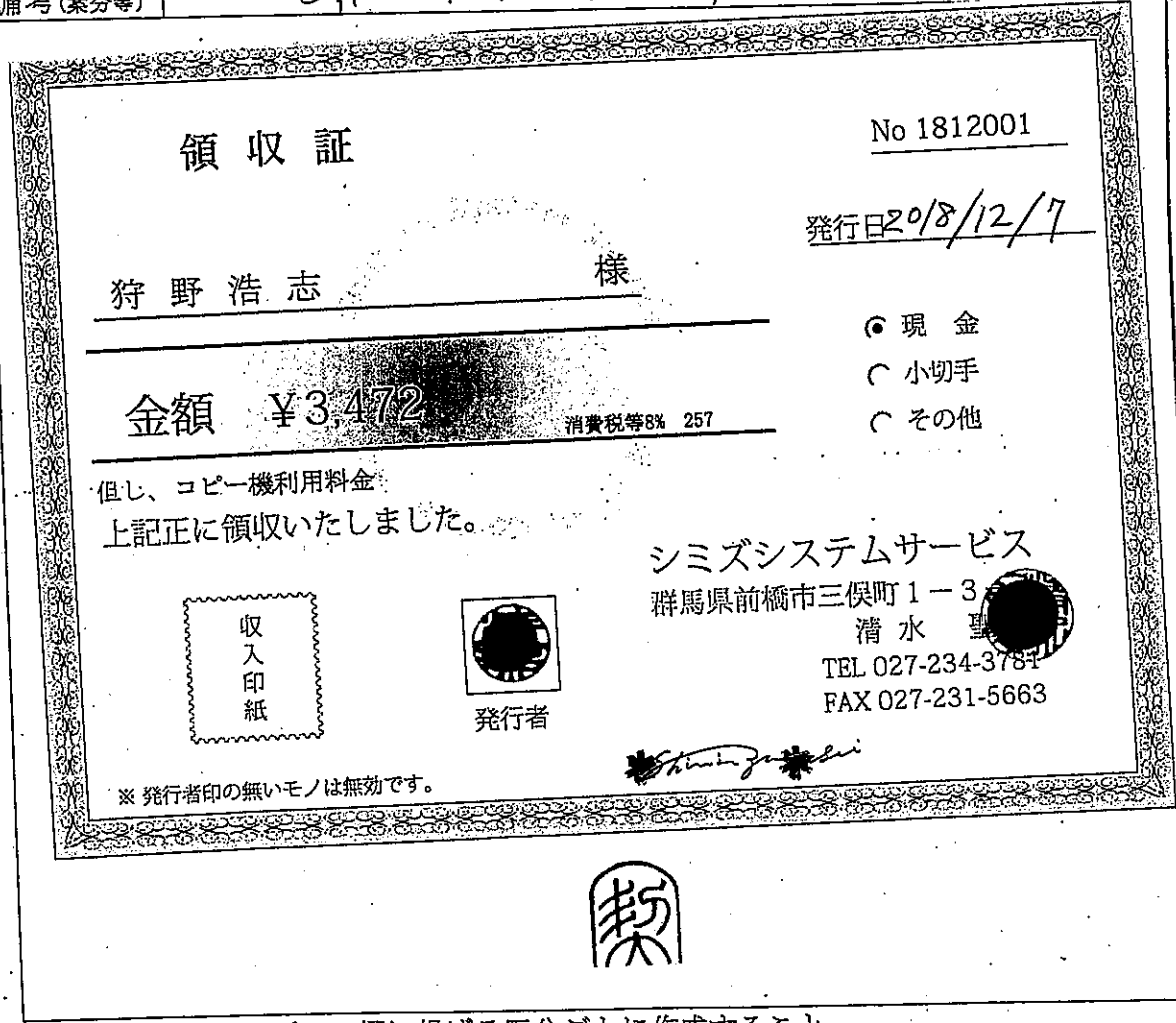 備考(案分等)
領収証
No 1812001
発行日2018/12/7
狩野浩志 様
現金
小切手
その他
金額 ¥3,472 消費税等8% 257
但し、コピー機利用料金
上記正に領収いたしました。
シミズシステムサービス
群馬県前橋市三俣町1-3
清水
TEL 027-234-3781
FAX 027-231-5663
収入印紙
発行者
※発行者印の無いモノは無効です。
契